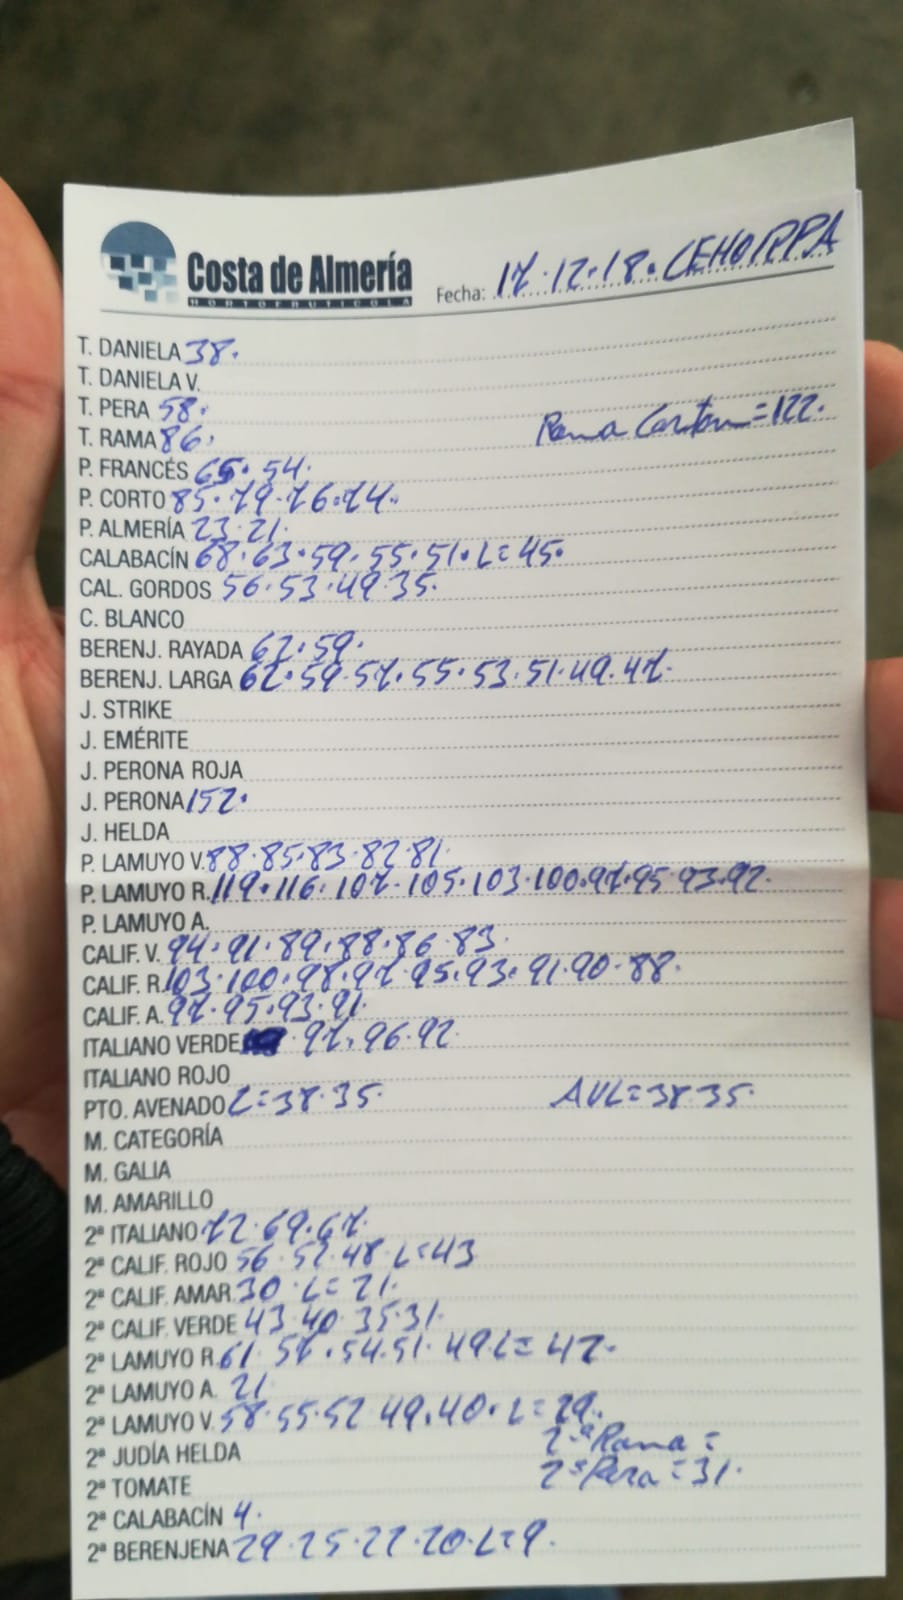 Costa de Almería
HORTOFRUTICOLA
Fecha: 17.12.18. CEHORPPA
T. DANIELA 38.
T. DANIELA V.
T. PERA 58.
T. RAMA 86. Rama Carton = 122.
P. FRANCÉS 65. 54.
P. CORTO 85. 79. 76. 74.
P. ALMERÍA 23. 21.
CALABACÍN 68. 63. 59. 55. 51. L = 45.
CAL. GORDOS 56. 53. 49. 35.
C. BLANCO
BERENJ. RAYADA 62. 59.
BERENJ. LARGA 62. 59. 57. 55. 53. 51. 49. 47.
J. STRIKE
J. EMÉRITE
J. PERONA ROJA
J. PERONA 152.
J. HELDA
P. LAMUYO V. 88. 85. 83. 82. 81.
P. LAMUYO R. 119. 116. 107. 105. 103. 100. 97. 95. 93. 92.
P. LAMUYO A.
CALIF. V. 94. 91. 89. 88. 86. 83.
CALIF. R. 103. 100. 98. 97. 95. 93. 91. 90. 88.
CALIF. A. 97. 95. 93. 91.
ITALIANO VERDE 97. 96. 92.
ITALIANO ROJO
PTO. AVENADO L = 38. 35. AVL = 38. 35.
M. CATEGORÍA
M. GALIA
M. AMARILLO
2ª ITALIANO 72. 69. 67.
2ª CALIF. ROJO 56. 52. 48. L = 43
2ª CALIF. AMAR. 30. L = 21.
2ª CALIF. VERDE 43. 40. 35. 31.
2ª LAMUYO R. 61. 57. 54. 51. 49. L = 47.
2ª LAMUYO A. 21
2ª LAMUYO V. 58. 55. 52. 49. 40. L = 29.
2ª JUDÍA HELDA 2ª Rama =
2ª TOMATE 2ª Pera = 31.
2ª CALABACÍN 4.
2ª BERENJENA 29. 25. 22. 20. L = 9.